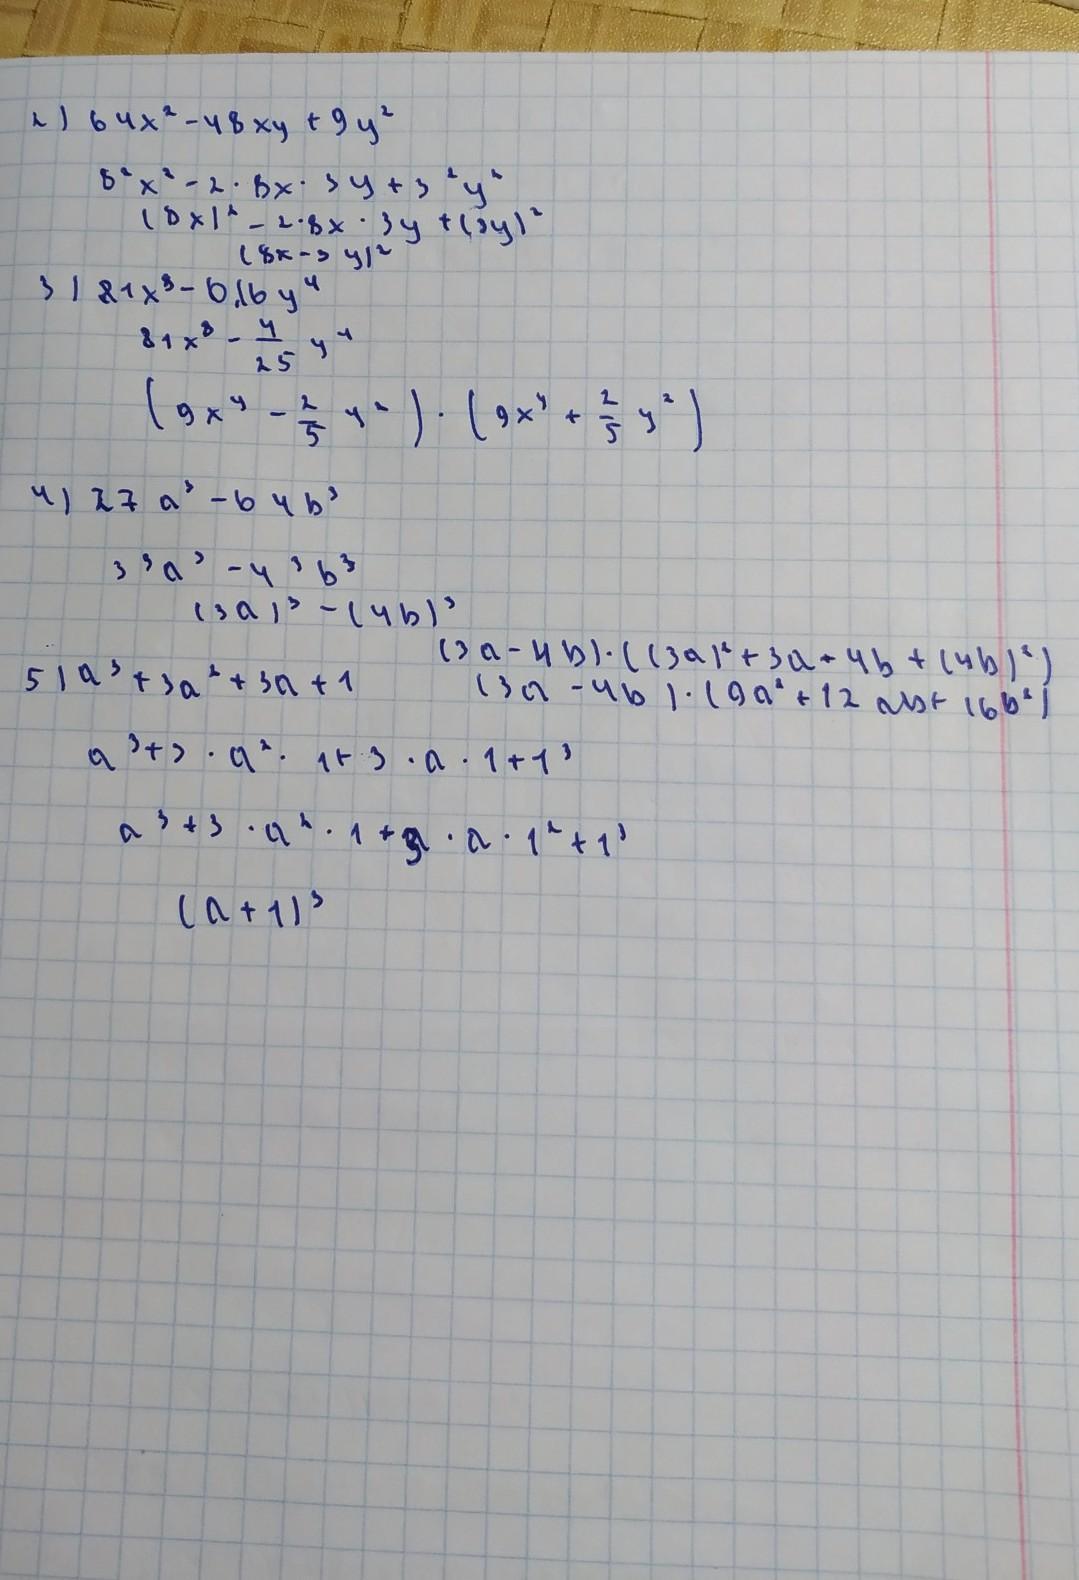 2) 64x² - 48xy + 9y²
8²x² - 2 · 8x · 3y + 3²y²
(8x)² - 2·8x · 3y + (3y)²
(8x - 3y)²
3) 81x⁸ - 0,16y⁴
81x⁸ - 4/25 y⁴
(9x⁴ - 2/5 y²) · (9x⁴ + 2/5 y²)
4) 27a³ - 64b³
3³a³ - 4³b³
(3a)³ - (4b)³
(3a - 4b) · ((3a)² + 3a · 4b + (4b)²)
(3a - 4b) · (9a² + 12ab + 16b²)
5) a³ + 3a² + 3a + 1
a³ + 3 · a² · 1 + 3 · a · 1 + 1³
a³ + 3 · a² · 1 + 3 · a · 1² + 1³
(a + 1)³